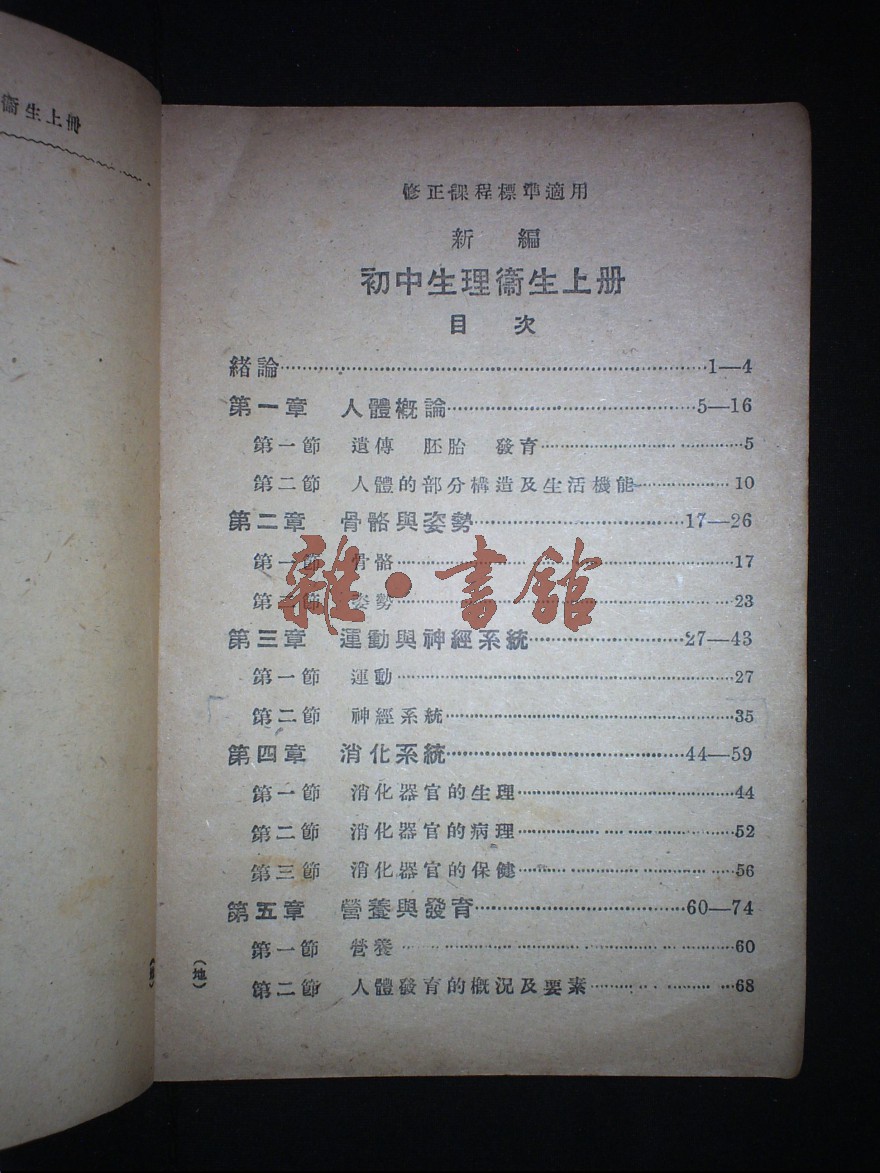 衞生上冊
修正課程標準適用
新 編
初中生理衞生上册
目 次
緒論……1—4
第一章 人體概論……5—16
第一節 遺傳 胚胎 發育……5
第二節 人體的部分構造及生活機能……10
第二章 骨骼與姿勢……17—26
第一節 骨骼……17
第二節 姿勢……23
雜·書館
第三章 運動與神經系統……27—43
第一節 運動……27
第二節 神經系統……35
第四章 消化系統……44—59
第一節 消化器官的生理……44
第二節 消化器官的病理……52
第三節 消化器官的保健……56
第五章 營養與發育……60—74
第一節 營養……60
第二節 人體發育的概況及要素……68
(地)